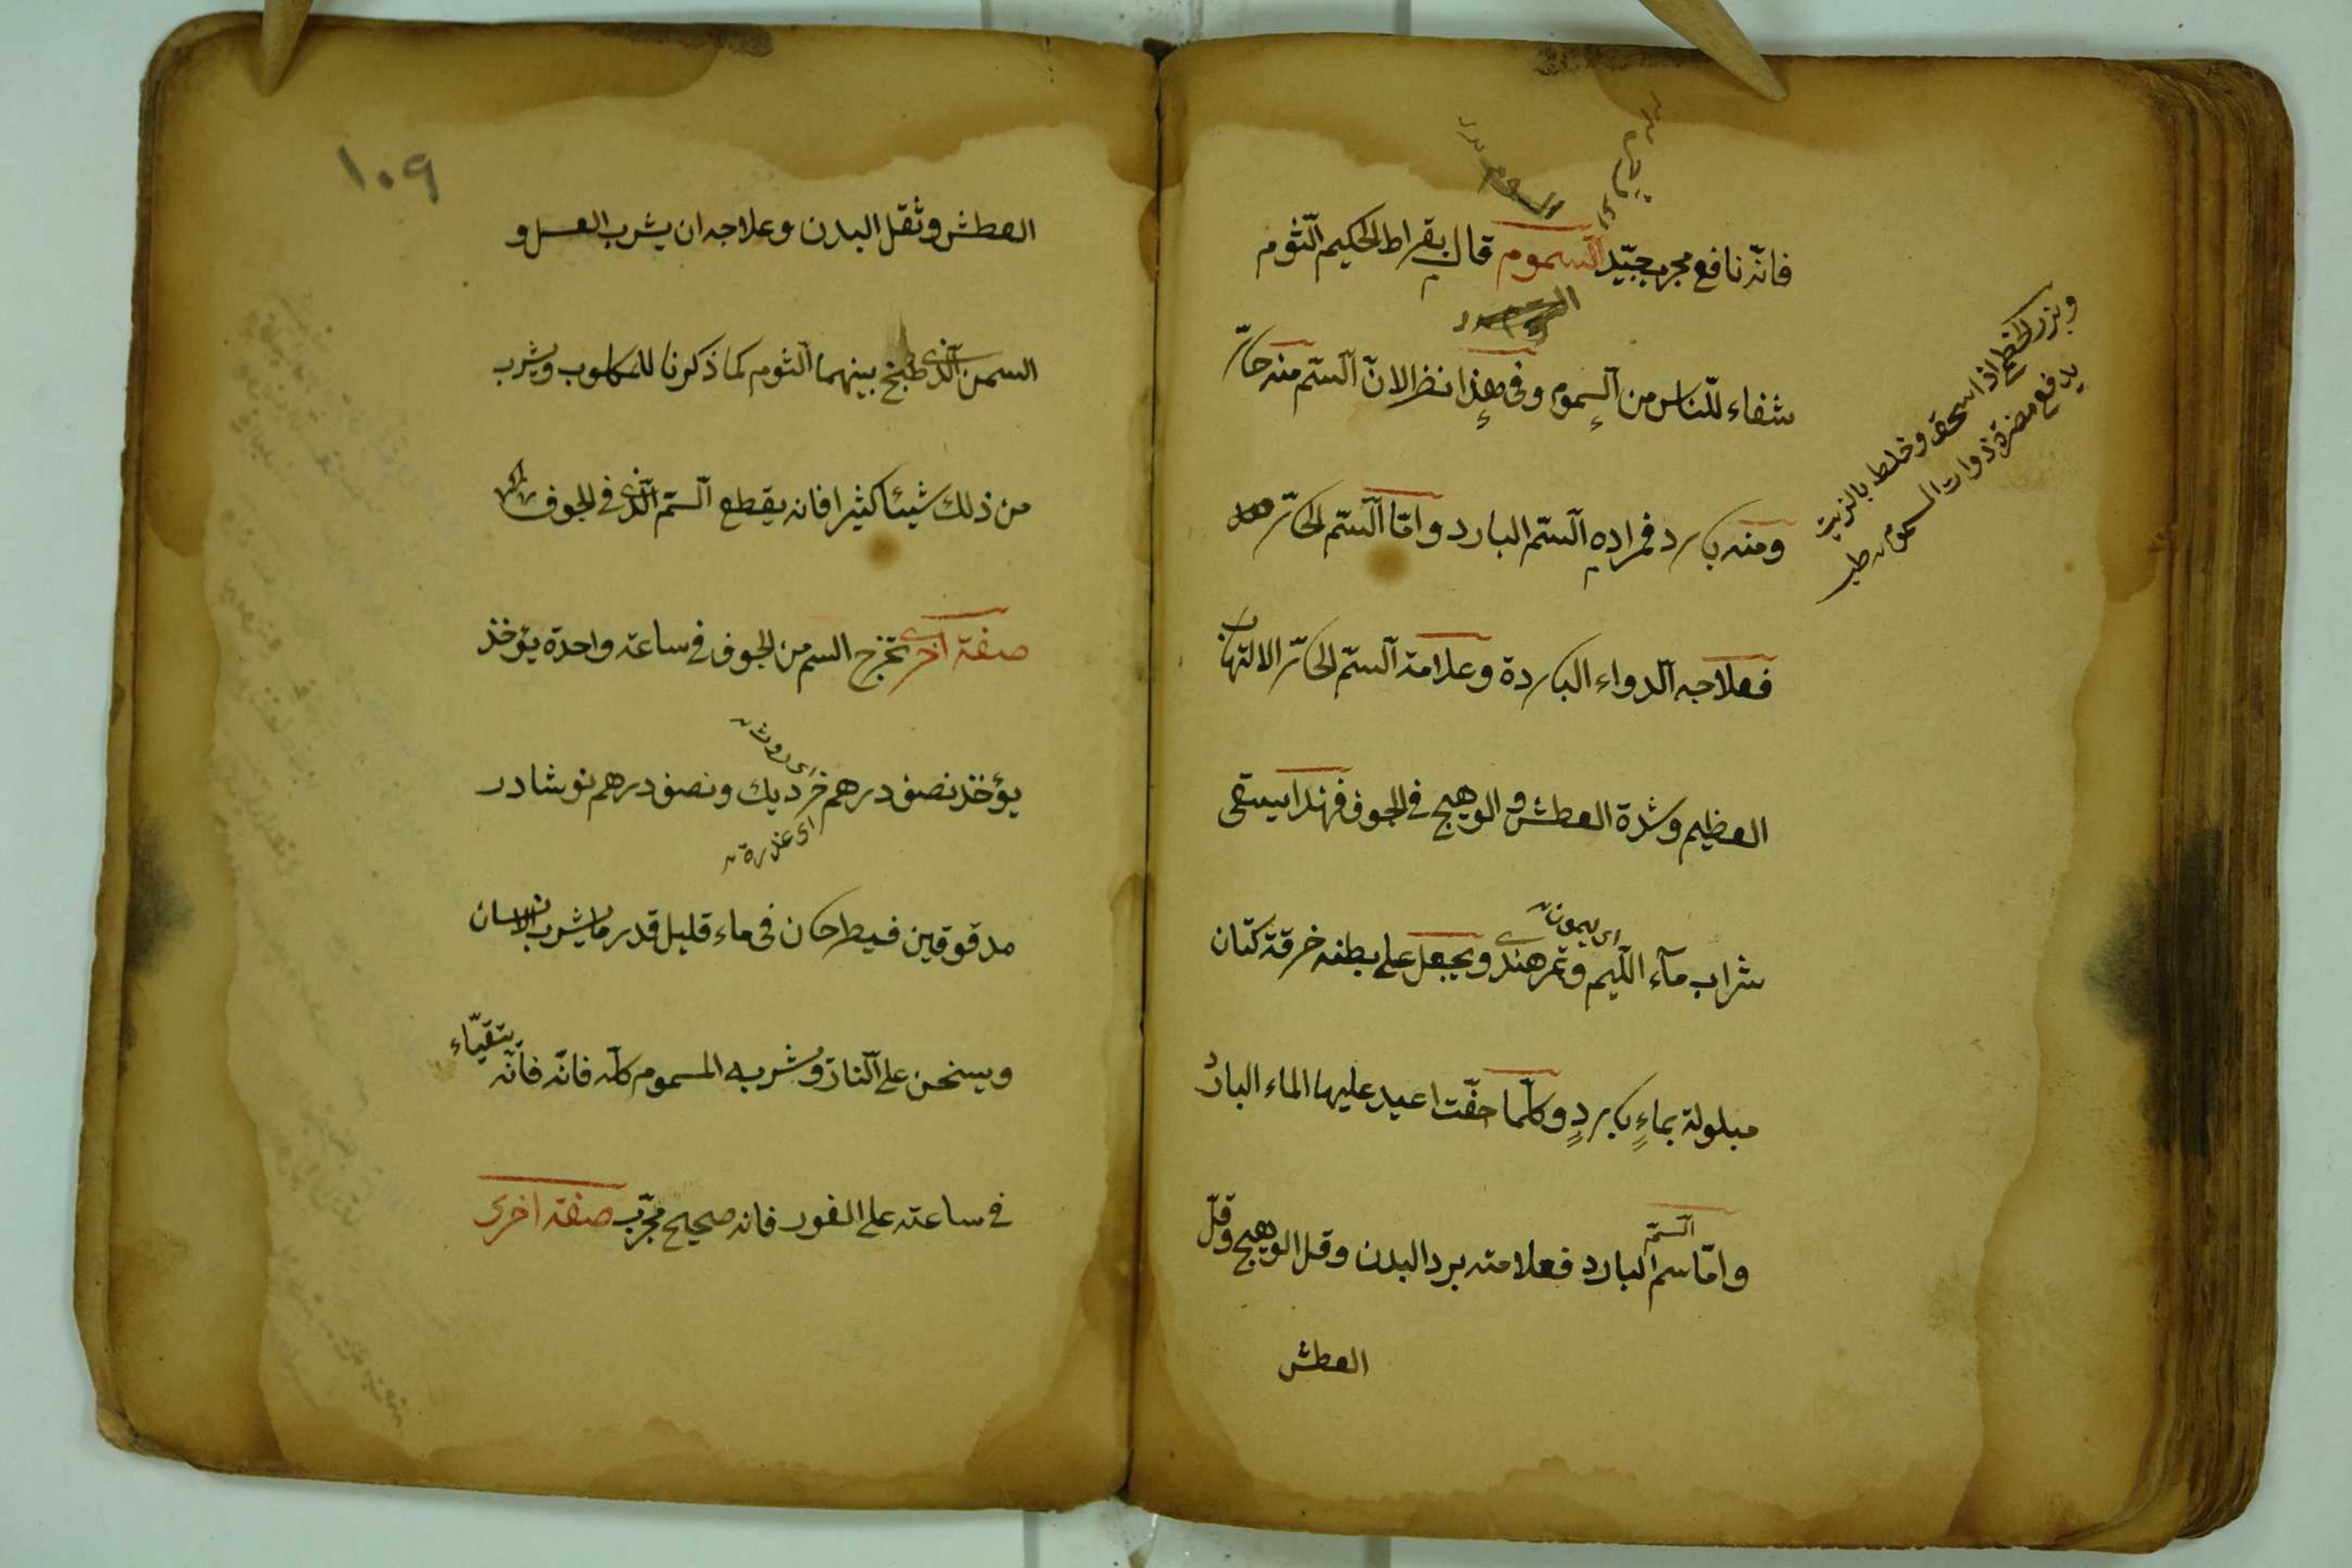 فانّه نافع مجرب جيّد السموم قال بقراط الحكيم الثوم
شفاء للنّاس من السموم وفى هذا نظر الانّ السّم منه حارّ
ومنه بارد فمراده السّم البارد وامّا السّم الحارّ
فعلاجه الدواء الباردة وعلامة السّم الحارّ الالتهاب
العظيم وشدة العطش والوهيج فى الجوف فهذا يسقى
اى ليمون
شراب مآء الليم وتمر هندى ويجعل على بطنه خرقة كتان
مبلولة بماءٍ باردٍ وكلّما جفّت اعيد عليها الماء البارد
وامّا سم البارد فعلامته برد البدن وقل الوهيج وقلّ
السّمّ
العطش
وبزر الخطم اذا سحق وخلط بالزيت
يدفع مضرة ذوات السموم طب
١٠٩
العطش وثقل البدن وعلاجه ان يشرب العسل و
السمن الذى طبخ بينهما الثوم كما ذكرنا للمكلوب ويشرب
من ذلك شيئا كثيرا فانه يقطع السّم الذى فى الجوف
صفة اخرى تخرج السم من الجوف فى ساعة واحدة يؤخذ
اى روث
يؤخذ نصف درهم خر ديك ونصف درهم نوشادر
اى عذرة
مدقوقين فيطرحان فى ماء قليل قدر ما يشرب الانسان
ويسخن على النار وشربه المسموم كله فانّه فانّه يتقيّاء
فى ساعته على الفور فانه صحيح مجرّب صفة اخرى